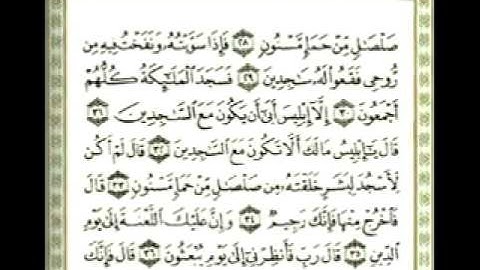 صَلْصَٰلٍ مِّنْ حَمَإٍ مَّسْنُونٍ ٢٨ فَإِذَا سَوَّيْتُهُۥ وَنَفَخْتُ فِيهِ مِن
رُّوحِى فَقَعُوا۟ لَهُۥ سَٰجِدِينَ ٢٩ فَسَجَدَ ٱلْمَلَٰٓئِكَةُ كُلُّهُمْ
أَجْمَعُونَ ٣٠ إِلَّآ إِبْلِيسَ أَبَىٰٓ أَن يَكُونَ مَعَ ٱلسَّٰجِدِينَ ٣١
قَالَ يَٰٓإِبْلِيسُ مَا لَكَ أَلَّا تَكُونَ مَعَ ٱلسَّٰجِدِينَ ٣٢ قَالَ لَمْ أَكُن
لِّأَسْجُدَ لِبَشَرٍ خَلَقْتَهُۥ مِن صَلْصَٰلٍ مِّنْ حَمَإٍ مَّسْنُونٍ ٣٣ قَالَ
فَٱخْرُجْ مِنْهَا فَإِنَّكَ رَجِيمٌ ٣٤ وَإِنَّ عَلَيْكَ ٱللَّعْنَةَ إِلَىٰ يَوْمِ
ٱلدِّينِ ٣٥ قَالَ رَبِّ فَأَنظِرْنِىٓ إِلَىٰ يَوْمِ يُبْعَثُونَ ٣٦ قَالَ فَإِنَّكَ